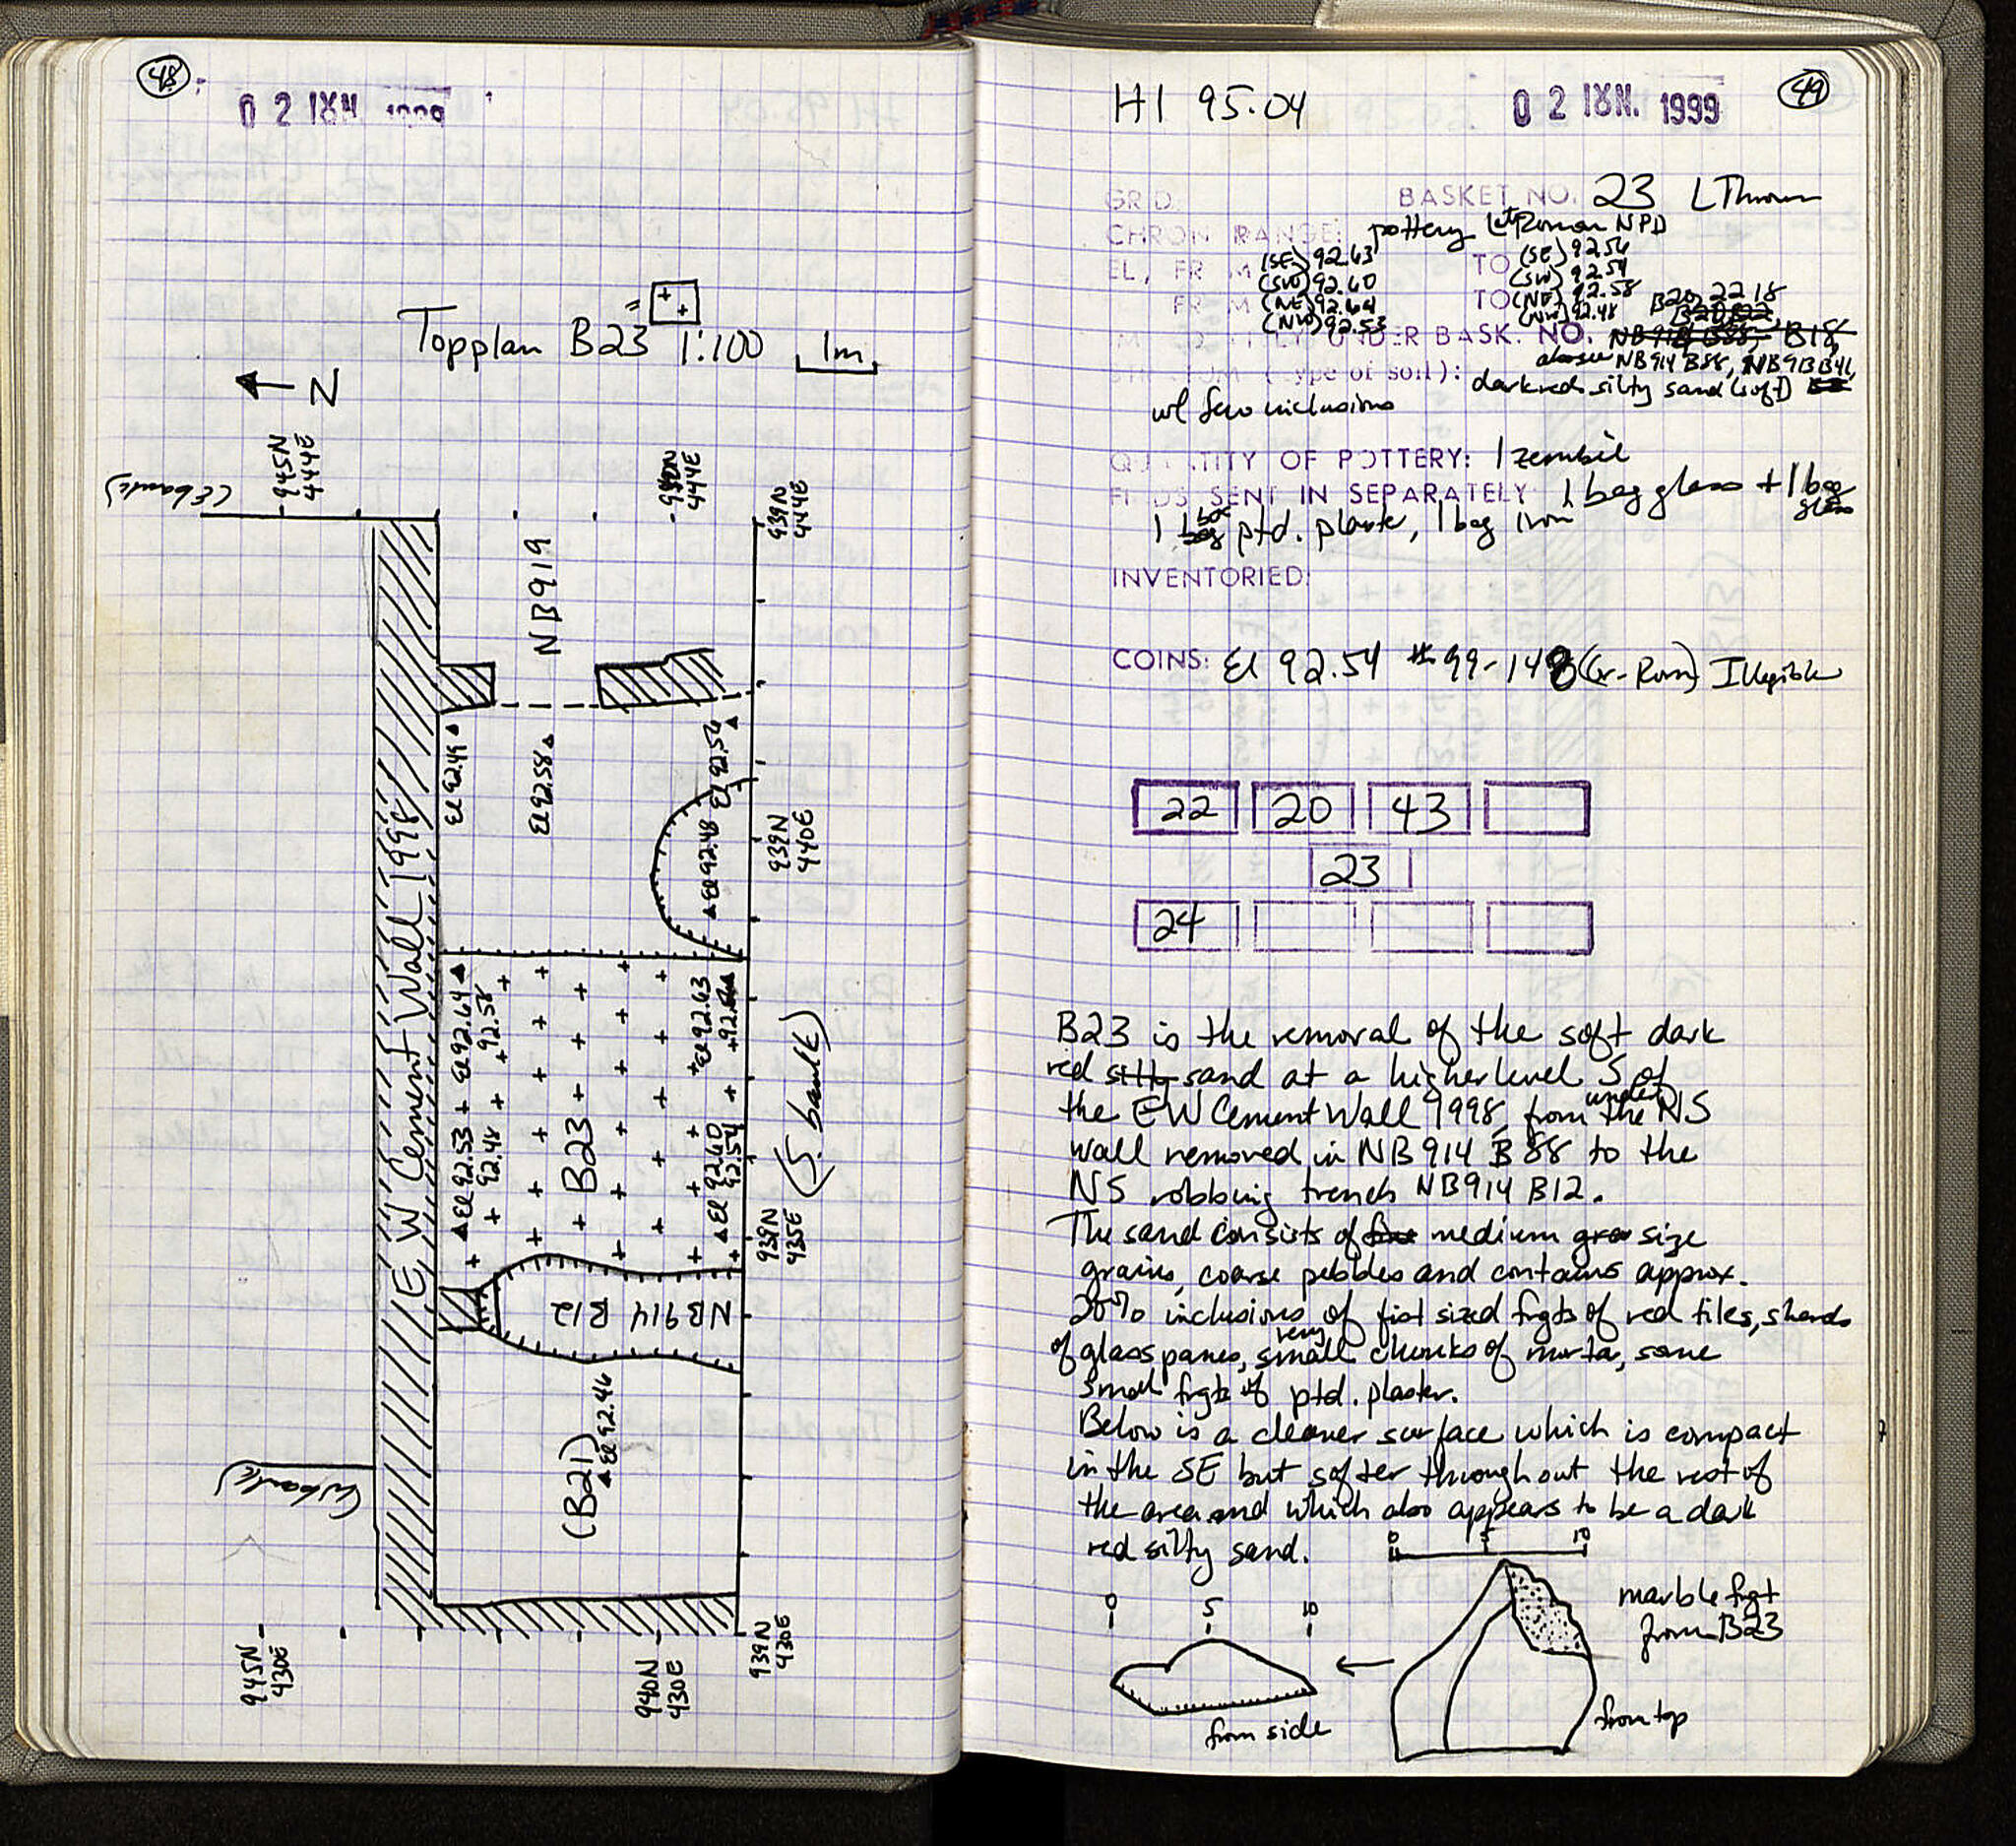 48
02 ΙΟΥΝ 1999
Topplan B23 1:100 1m
N
(E baulk)
945N
444E
940N
444E
939N
444E
NB919
E W Cement Wall 1998
El 92.49
El 92.58
El 92.56
El 92.48
939N
440E
El 92.64
92.58
El 92.63
92.56
El 92.53
92.48
B23
El 92.60
92.54
(S. baulk)
939N
435E
NB914 B12
(B21)
El 92.46
(W baulk)
945N
430E
940N
430E
939N
430E
HI 95.04
02 ΙΟΥΝ. 1999
49
GRID: BASKET NO. 23 LThurn
CHRON RANGE: pottery Lt Roman NPD
EL, FROM (SE) 92.63 TO (SE) 92.56
(SW) 92.60 (SW) 92.54
FROM (NE) 92.64 TO (NE) 92.58
(NW) 92.53 (NW) 92.48
B20, 22 18
IMMEDIATELY UNDER BASK. NO. NB914 B88, B18
above NB914 B88, NB913 B41,
STRATUM (type of soil): dark red silty sand (soft)
w/ few inclusions
QUANTITY OF POTTERY: 1 zembil
FINDS SENT IN SEPARATELY 1 bag glass + 1 bag
glass
1 box bag ptd. plaster, 1 bag iron
INVENTORIED:
COINS: El 92.54 # 99-148 (Gr-Rom) Illegible
22 20 43
23
24
B23 is the removal of the soft dark
red silty sand at a higher level S of
the EW Cement Wall 1998, from under the NS
wall removed in NB914 B88 to the
NS robbing trench NB914 B12.
The sand consists of fine medium gra size
grains, coarse pebbles and contains approx.
20% inclusions of fist sized frgts of red tiles, sherds
of glass panes, very small chunks of morta, some
small frgts of ptd. plaster.
Below is a cleaner surface which is compact
in the SE but softer throughout the rest of
the area and which also appears to be a dark
red silty sand.
0 5 10
0 5 10
marble frgt
from B23
from side
from top